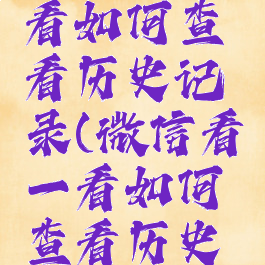 看如何查
看历史记
录(微信看
一看如何
查看历史